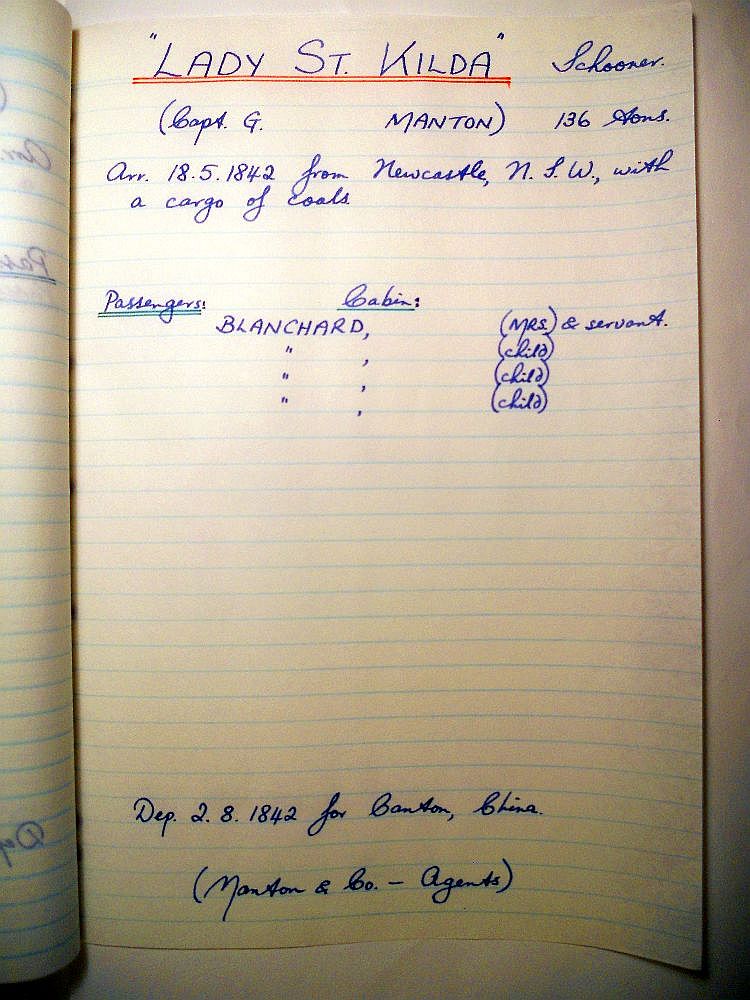 "LADY ST. KILDA" Schooner.
(Capt. G. MANTON) 136 tons.
Arr. 18.5.1842 from Newcastle, N.S.W., with
a cargo of coals
Passengers: Cabin:
BLANCHARD, (MRS.) & servant.
" , (child)
" , (child)
" , (child)
Dep. 2.8.1842 for Canton, China.
(Manton & Co. – Agents)